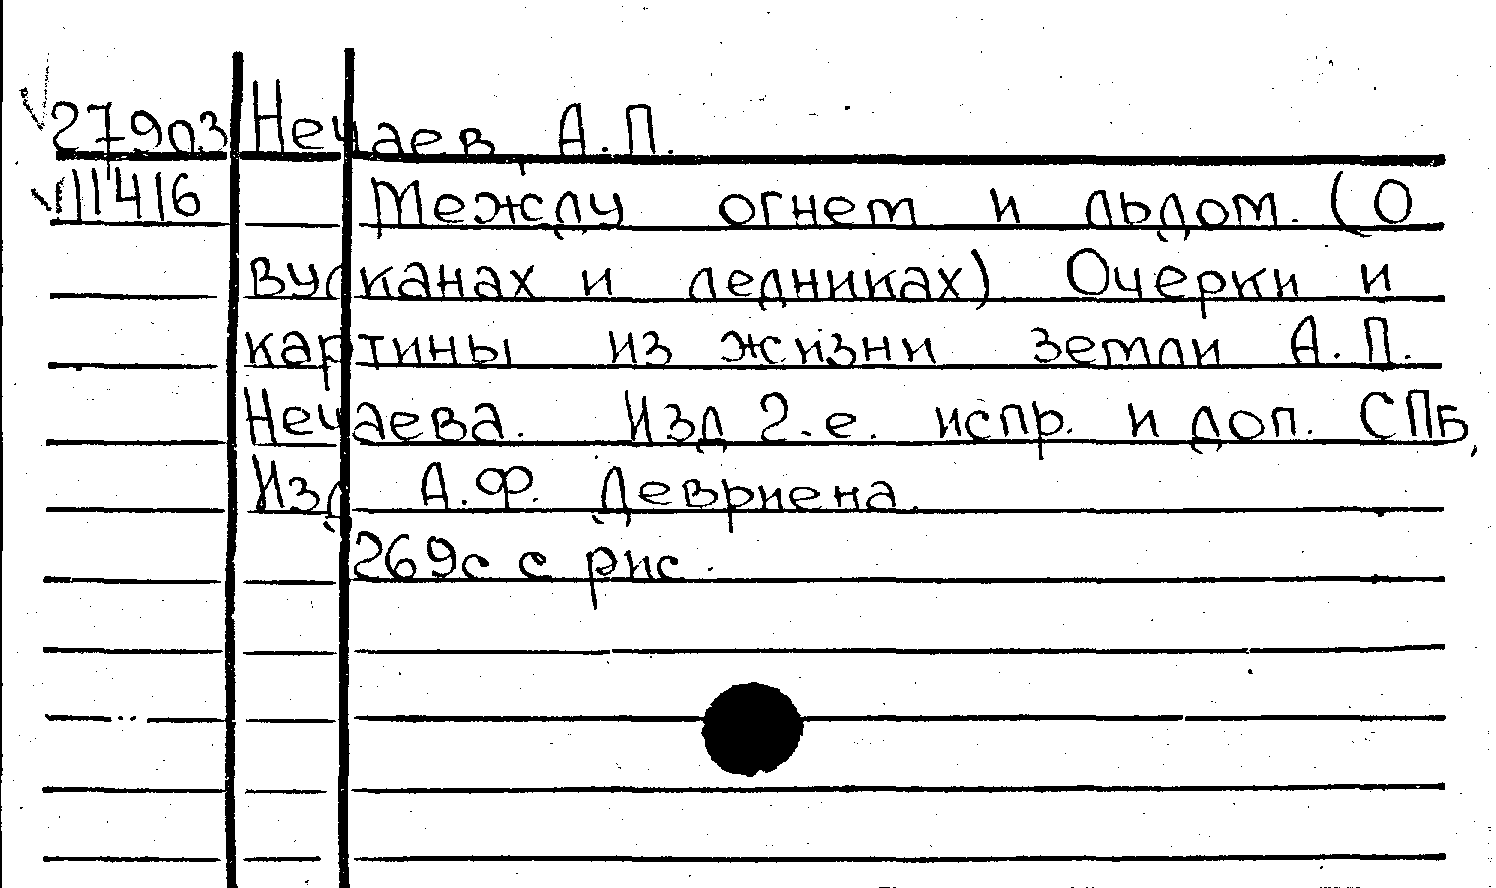 27903 Нечаев, А.П.
11416 Между огнем и льдом. (О
вулканах и ледниках) Очерки и
картины из жизни земли А.П.
Нечаева. Изд 2-е. испр. и доп. СПБ,
Изд А.Ф. Девриена.
269с с рис.